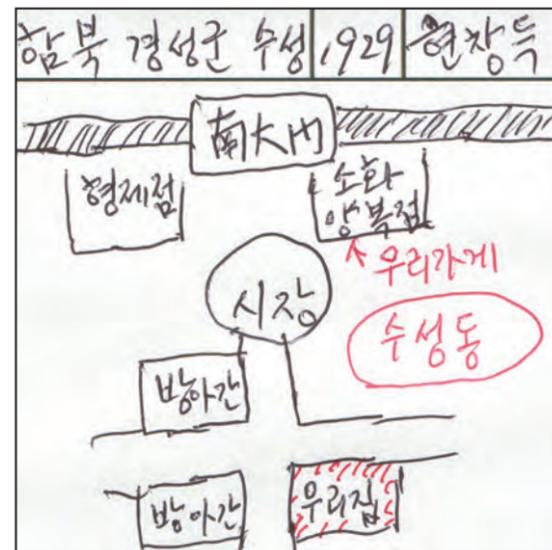 함북 경성군 수성 1929 현창득
南大门
형제점
소화
양복점
우리가게
시장
수성동
방아간
방아간
우리집